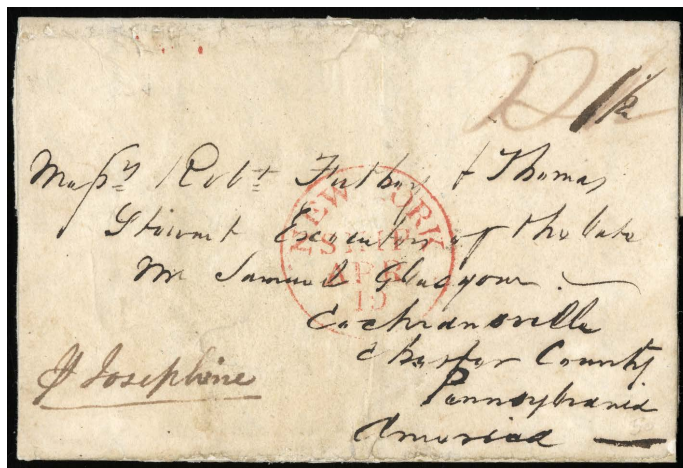 Messrs Robt Futhey & Thomas
Stewart Executors of the late
Mr Samuel Glasgow
Cochransville
Chester County
Pennsylvania
America
p Josephine
NEW YORK
SHIP
APR
19